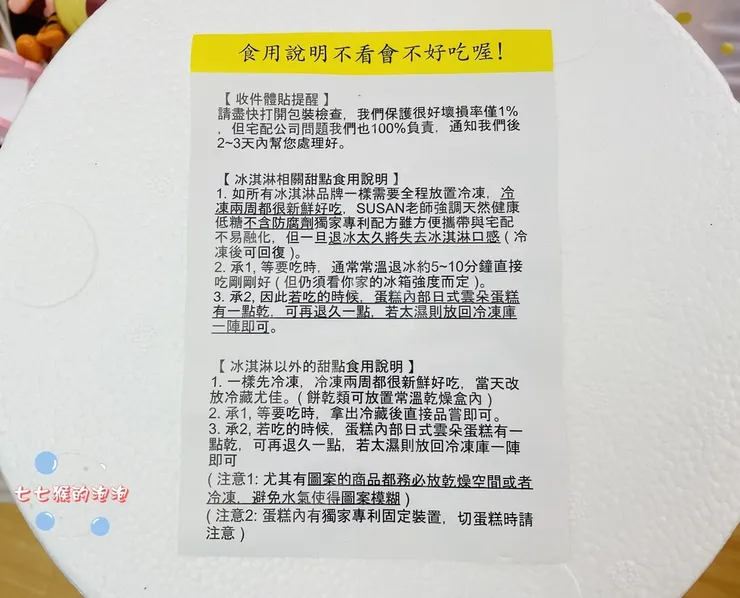 食用說明不看會不好吃喔!
【 收件體貼提醒 】
請盡快打開包裝檢查，我們保護很好壞損率僅1%
，但宅配公司問題我們也100%負責，通知我們後
2~3天內幫您處理好。
【 冰淇淋相關甜點食用說明 】
1. 如所有冰淇淋品牌一樣需要全程放置冷凍，冷
凍兩周都很新鮮好吃，SUSAN老師強調天然健康
低糖不含防腐劑獨家專利配方雖方便攜帶與宅配
不易融化，但一旦退冰太久將失去冰淇淋口感 ( 冷
凍後可回復 )。
2. 承1, 等要吃時，通常常溫退冰約5~10分鐘直接
吃剛剛好 ( 但仍須看你家的冰箱強度而定 )。
3. 承2, 因此若吃的時候，蛋糕內部日式雲朵蛋糕
有一點乾，可再退久一點，若太濕則放回冷凍庫
一陣即可。
【 冰淇淋以外的甜點食用說明 】
1. 一樣先冷凍，冷凍兩周都很新鮮好吃，當天改
放冷藏尤佳。( 餅乾類可放置常溫乾燥盒內 )
2. 承1, 等要吃時，拿出冷藏後直接品嘗即可。
3. 承2, 若吃的時候，蛋糕內部日式雲朵蛋糕有一
點乾，可再退久一點，若太濕則放回冷凍庫一陣
即可
( 注意1: 尤其有圖案的商品都務必放乾燥空間或者
冷凍，避免水氣使得圖案模糊 )
( 注意2: 蛋糕內有獨家專利固定裝置，切蛋糕時請
注意 )
七七猴的泡泡